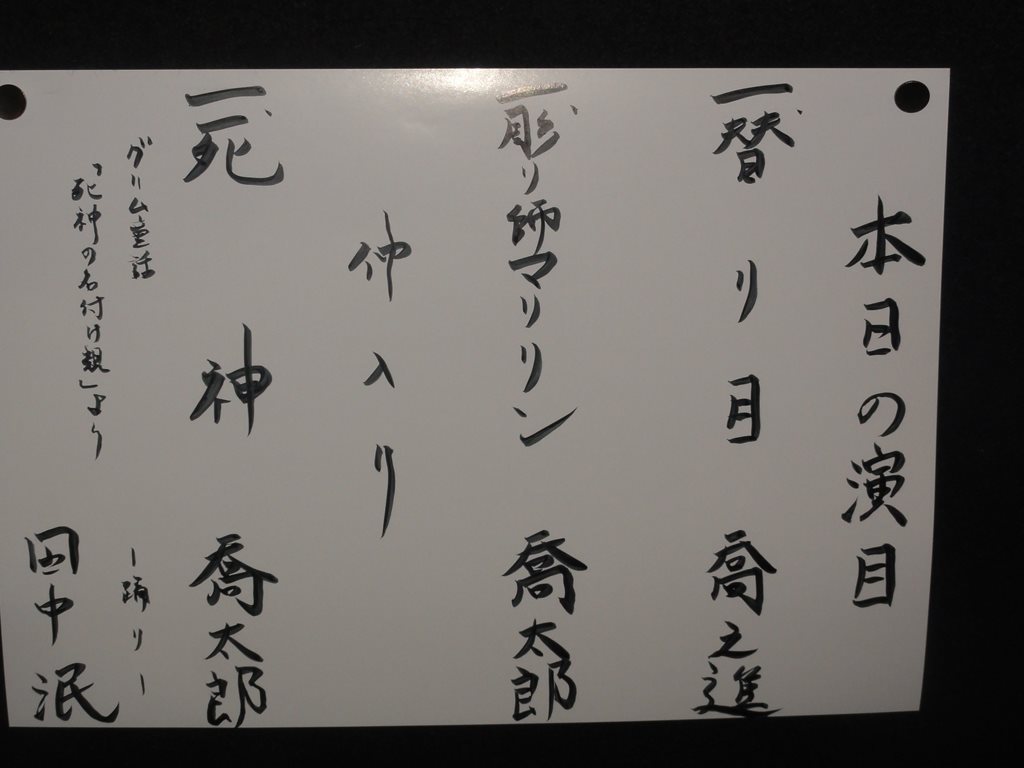 本日の演目
一、替り目 喬之進
一、彫り師マリリン 喬太郎
仲入り
一、死神 喬太郎
グリム童話
「死神の名付け親」より
ー踊りー
田中泯